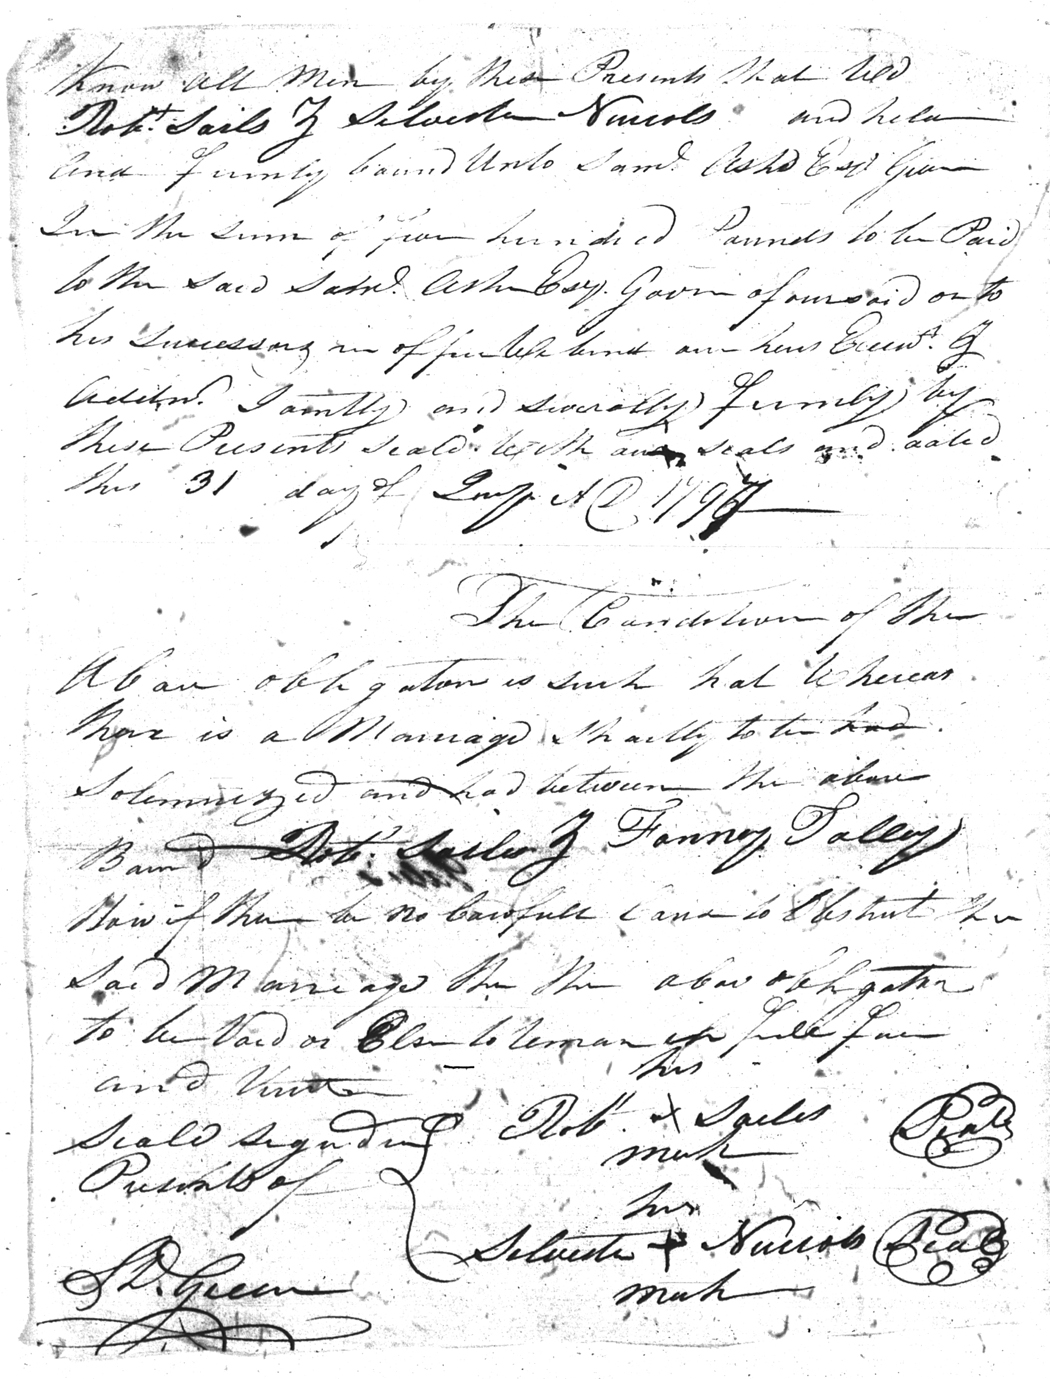 Know all Men by these Presents that we
Robt. Sails & Silvester Nucols and held
and firmly bound Unto Saml. Ashe Esqr. Gov
In the sum of five hundred Pounds to be Paid
to the said Saml. Ashe Esqr. Govr aforesaid or to
his successors in office bind our heirs Execrs. &
Jointly and severally firmly by
these Presents seald with our seals and dated
this 31 day of AD 1797
The Condition of the
Above obligation is such that Whereas
there is a Marriage Shortly to be had
Solemnized and had between the above
Bound Robt. Sailes & Fanney Talley
Now if there be no Lawfull Cause to Obstruct the
said Marriage then the above obligation
to be Void or Else to remain in full force
and Virtue
Seald signd in
Presents of
his
Robt. X Sailes Seal
mark
his
Silvester X Nucols Seal
mark
Green